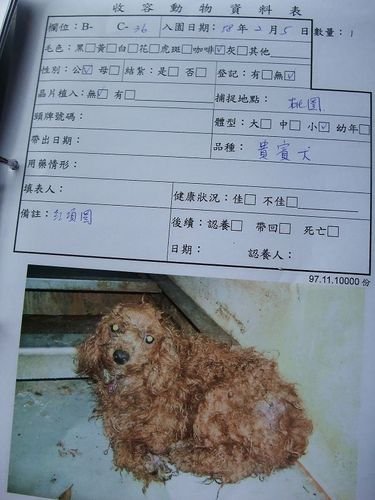 收容動物資料表
欄位：B- C-36 入園日期：98年2月5日 數量：1
毛色：黑□黃□白□花□虎斑□咖啡☑灰□其他
性別：公☑ 母□ 結紮：是□ 否□ 登記：有□無☑
晶片植入：無☑ 有□ 捕捉地點：桃園
頸牌號碼： 體型：大□ 中□ 小☑ 幼年□
帶出日期： 品種：貴賓犬
用藥情形：
填表人： 健康狀況：佳□ 不佳□
備註：紅項圈 後續：認養□ 帶回□ 死亡□
日期： 認養人：
97.11.10000份